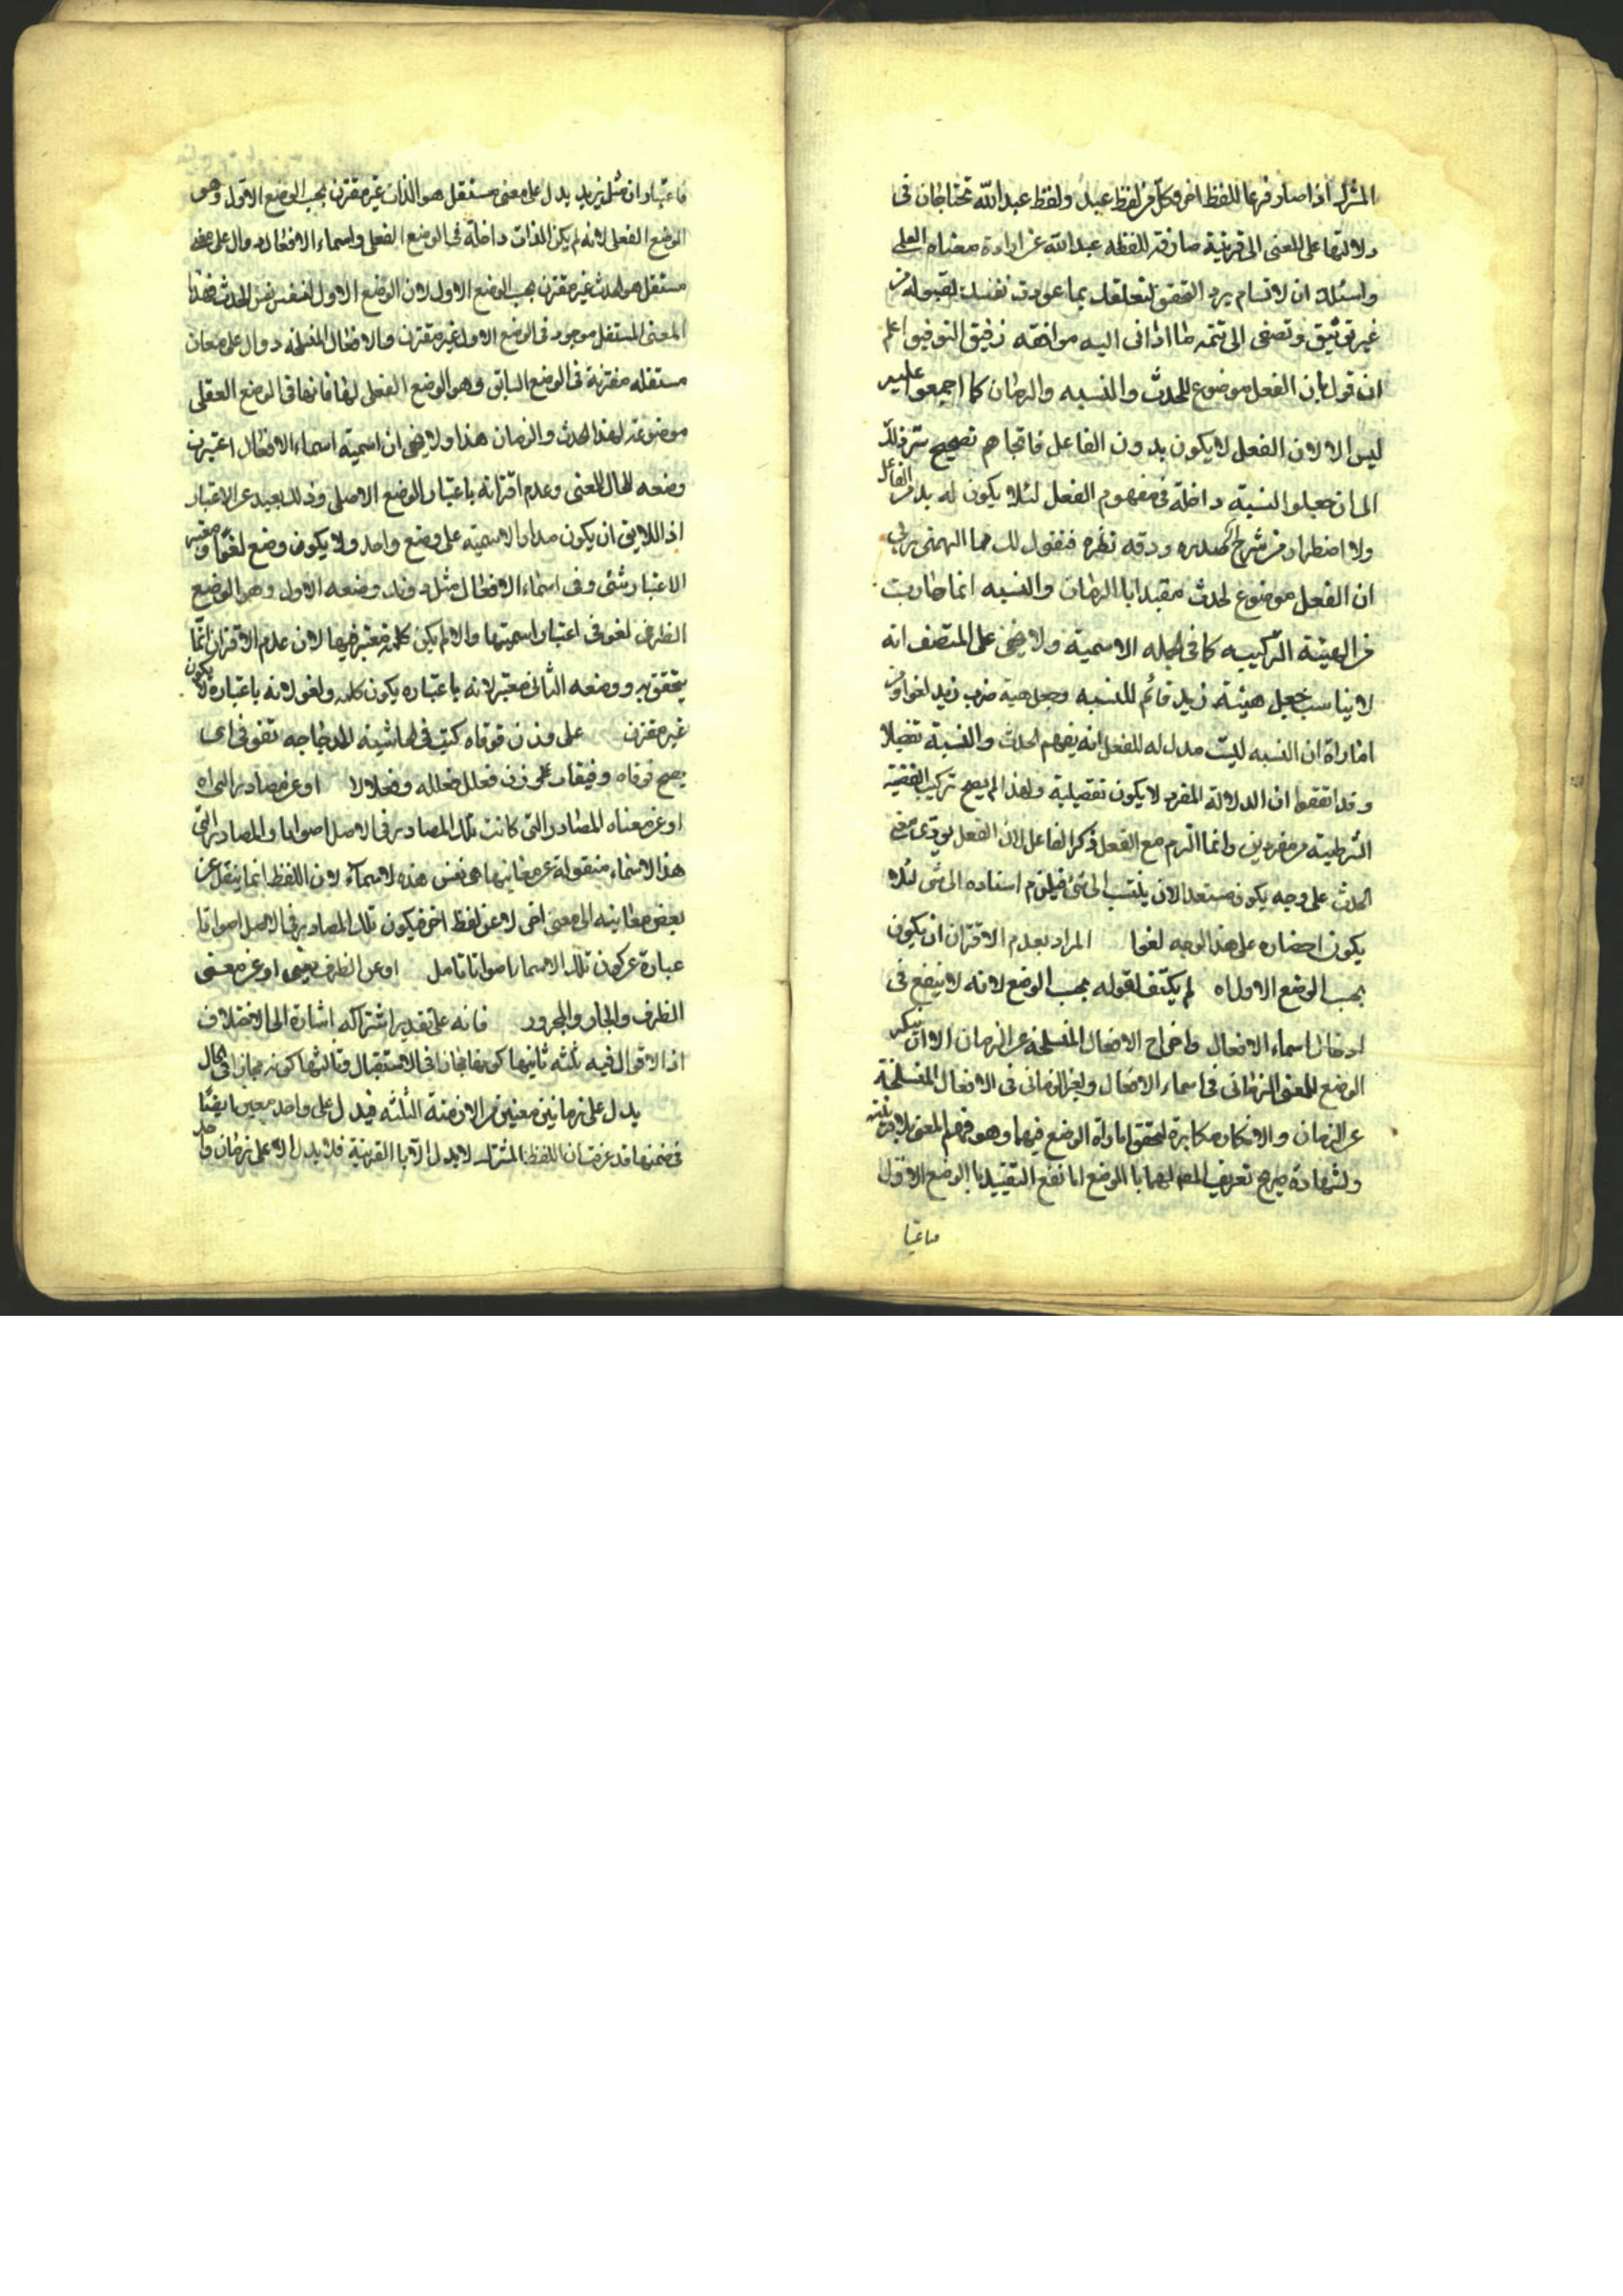 المشترك اذا صار فرعا للفظ اخر وكل من لفظ عبد ولفظ عبد الله تحتاجان فى
دلالتها على المعنى الى قرينة صارفة للفظه عبد الله عن ارادة معناه العلمى
واسئلك ان لاتسام برد التحقيق لتعلقك بما عودت نفسك لقبوله من
غير توثيق وتصغى الى تتمه ما اذا فى اليه موافقه رفيق التوفيق اعلم
ان قولنا بان الفعل موضوع للحدث والنسبه والزمان كما اجمعوا عليه
ليس الا لان الفعل لا يكون بدون الفاعل فالجاهم تصحيح ذلك
الى ان جعلوا النسبة داخلة فى مفهوم الفعل لئلا يكون له بد من الفاعل
ولا اضطرار من شرح صدره ودقه نظره فنقول لك مما الهمنى ربى
ان الفعل موضوع لحدث مقيدا بالزمان والنسبه انما جاءت
من الهيئة التركيبيه كما فى الجمله الاسمية ولا يخفى على المنصف انه
لا يناسب جعل هيئة زيد قائم للنسبه وجعل هية ضرب زيد لغوا ومن
اماراة ان النسبه ليست مدلوله للفعل انه يفهم الحدث والنسبة تفصيلا
وقد اتفقوا ان الدلالة المفرد لا يكون تفصيلية ولهذا لم يصح تركيب القضية
الشرطية من مفردين وانما التزم مع الفعل ذكر الفاعل لان الفعل يودى معنى
الحدث على وجه يكون مستعدا لان ينتسب الى شى فيلزم اسناده الى شى لئلا
يكون احضاره على هذا الوجه لغوا المراد بعدم الاقتران ان يكون
بحسب الوضع الاول اه لم يكتف لقوله بحسب الوضع لانه لا ينفع فى
ادخال اسماء الافعال واخراج الافعال المنسلخة عن الزمان الا ان ينكر
الوضع للمعنى الزمانى فى اسماء الافعال ولغير الزمانى فى الافعال المنسلخة
عن الزمان والانكار مكابرة لتحقق اماراة الوضع فيهما وهو فهم المعنى بلا قرينة
ولشهادة صرح تعريف المص لهما بالوضع اما نفع التقييد بالوضع الاول
فاعتبا
فاعتبار ان مثل يزيد يدل على معنى مستقل هو الذات غير مقترن بحسب الوضع الاول وهو
الوضع الفعلى لانه لم يكن الذات داخلة فى الوضع الفعلى واسماء الافعال دوال على معنى
مستقل هو الحدث غير مقترن بحسب الوضع الاول لان الوضع الاول لنفس الحدث فهذا
المعنى المستقل موجود فى الوضع الاول غير مقترن والافعال المنسلخه دوال على معان
مستقله مقترنة فى الوضع السابق وهو الوضع الفعلى لها فانها فى الوضع الفعلى
موضوعة لهذا الحدث والزمان هذا ولا يخفى ان اسمية اسماء الافعال اعتبرت
وضعه للحال للمعنى وعدم اقترانه باعتبار الوضع الاصلى وذلك بعيد عن الاعتبار
اذ اللايق ان يكون مدار الاسمية على وضع واحد ولا يكون وضع لغوا
الاعتبار شئى وفى اسماء الافعال مثل وضعه الاول وهو الوضع
الظرف لغو فى اعتبار اسميتها والا لم يكن كلمة معتبر فيها لان عدم الاقتران انما
يتحقق به ووضعه الثانى معتبر لانه باعتباره يكون كلمه ولغو لانه باعتباره لا يكون
غير مقترن على وزن قوقاه كتب فى الحاشية الدجاجه تقوقى اى
يصح قوقاه وقيقاء على وزن فعلل فعلله وفعلالا او عن مصادر اه
او عن معناه المصادر التى كانت تلك المصادر فى الاصل اصواتا والمصادر التى
هذا الاسماء منقولة عن معانيها هى نفس هذه الاسماء لان اللفظ انما ينقل عن
بعض معانيه الى معنى اخر لا عن لفظ اخر فيكون تلك المصادر فى الاصل اصواتا
عبارة عن كون تلك الاسماء اصواتا تامل او عن الظرف يعنى او عن معنى
الظرف والجار والمجرور فانه على تقدير اشتراكه اشارة الى الاختلاف
اذ الاقوال فيه ثلثه ثانيها كونه مجازا فى الاستقبال وثالثها كونه مجازا فى الحال
يدل على زمانين معينين من الازمنة الثلثه فيدل على واحد معين ايضا
فى ضمنها قد عرفت ان اللفظ المشترك لا يدل الا بالقرينة فلا يدل الا على زمان واحد